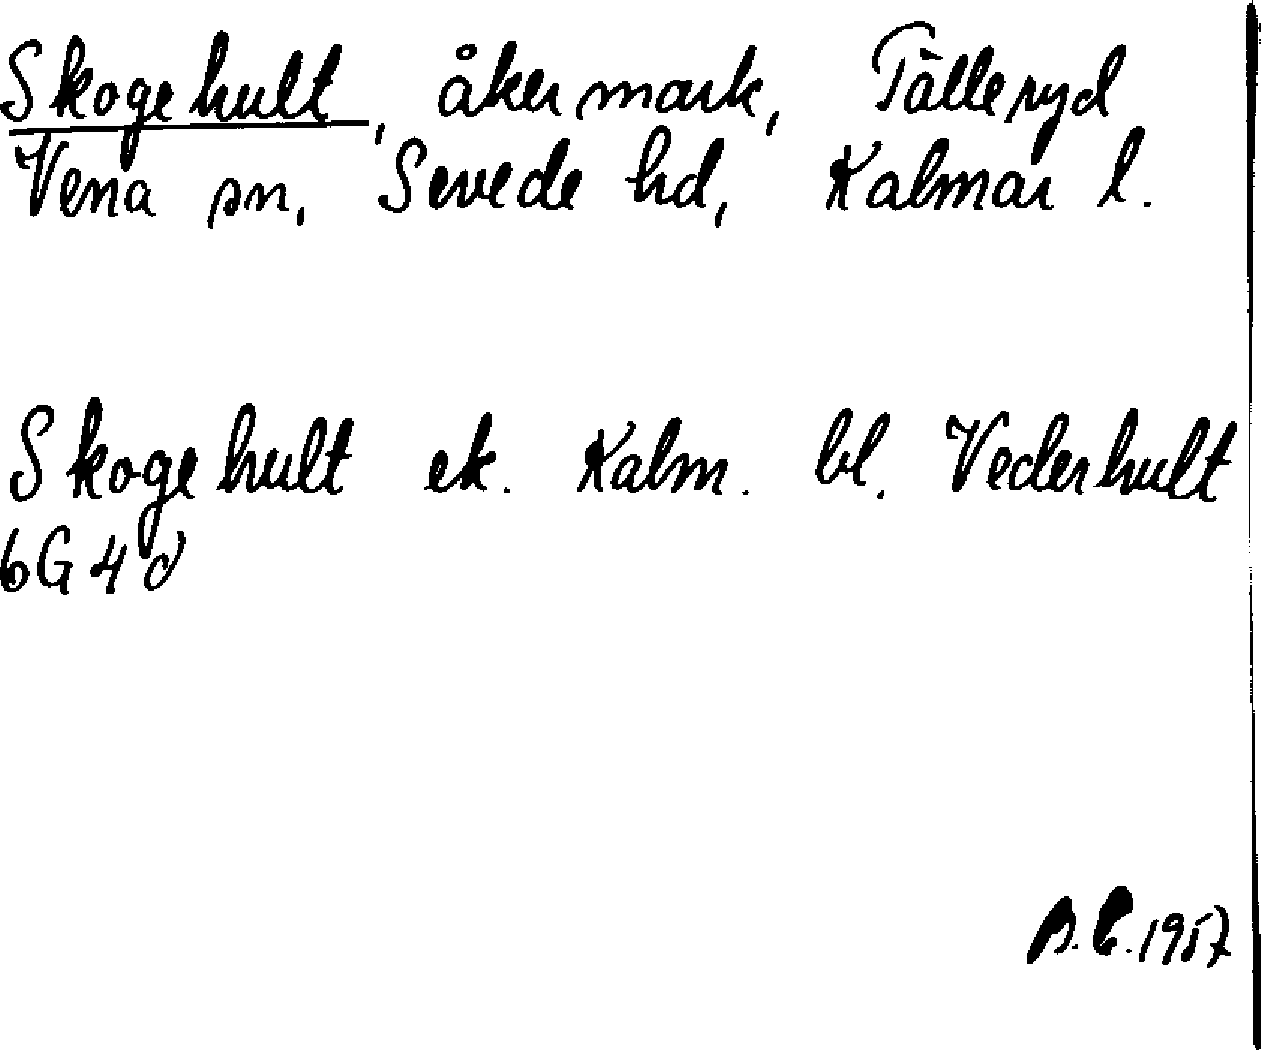 Skogehult, åkermark, Tålleryd
Vena sn, Sevede hd, Kalmar l.
Skogehult ek. Kalm. bl. Vederhult
6G4d
B.E.1957